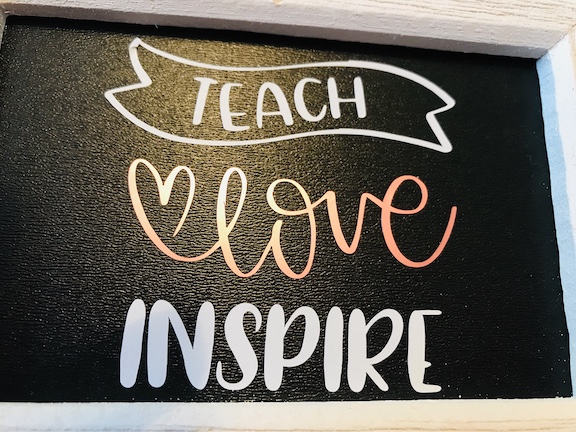 TEACH
love
INSPIRE